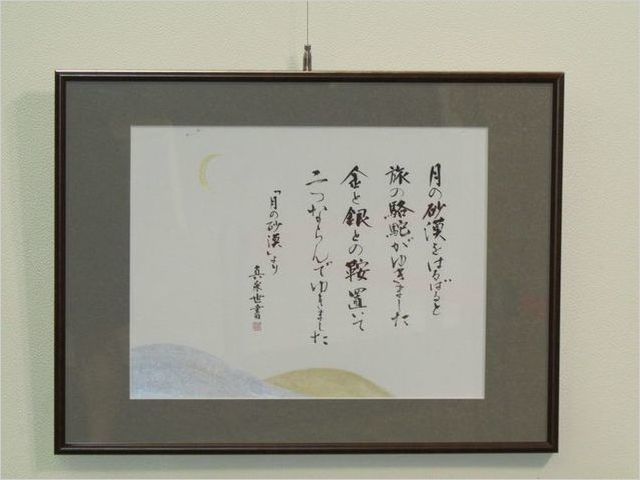 月の砂漠をはるばると
旅の駱駝がゆきました
金と銀との鞍置いて
二つならんでゆきました
「月の砂漠」より
真泉世書